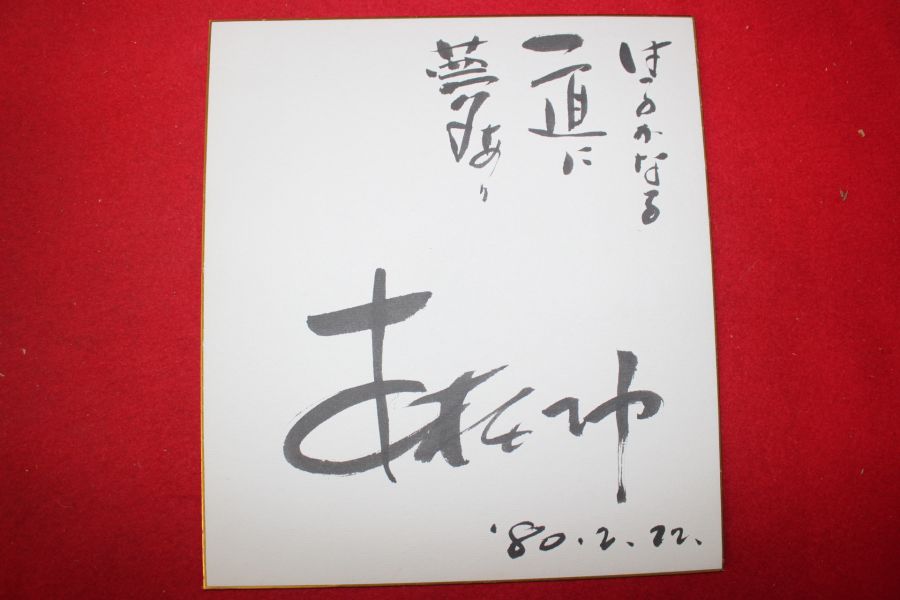 はるかなる
一道に
夢あり
'80.2.22.